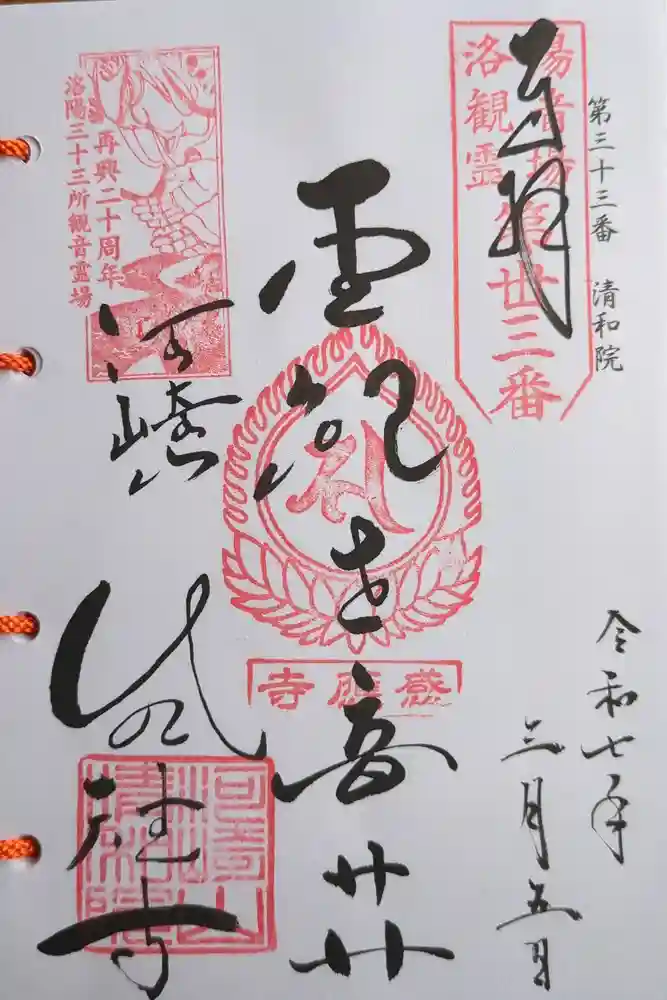 第三十三番　清和院
奉拝
洛陽
観音
霊場
第卅三番
令和七年
三月五日
聖観世音𦬇
感應寺
再興二十周年
洛陽三十三所観音霊場
河崎　感應寺
河崎山
清和院